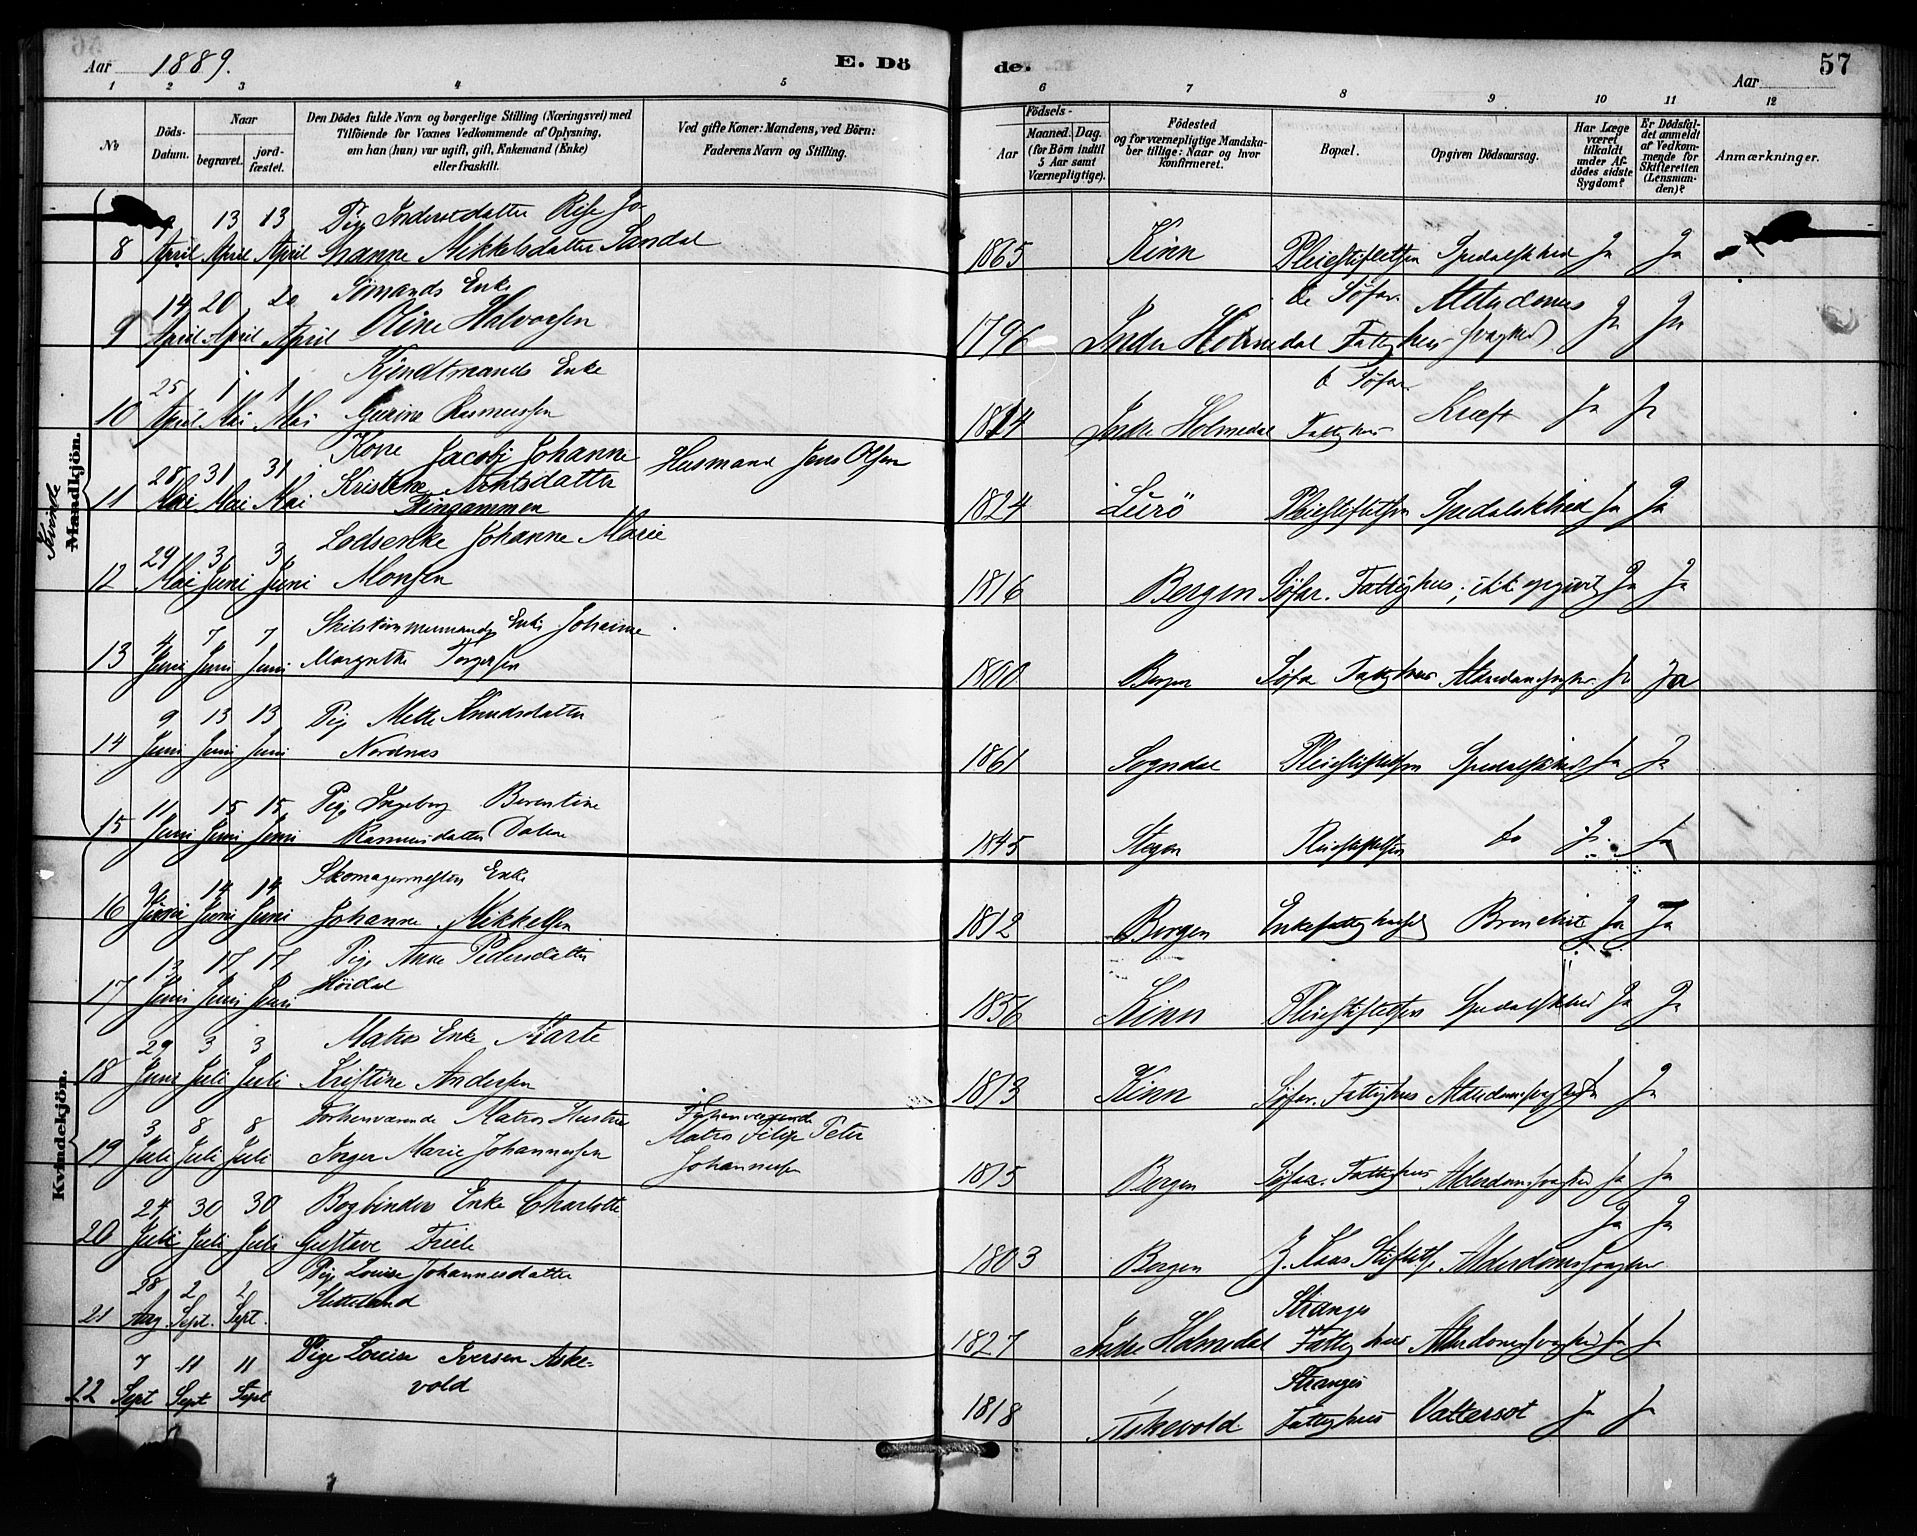 Aar 1889.
E. Dö
de.
Aar
57
1 2 3 4 5 6 7 8 9 10 11 12
No
Döds-
Datum.
Naar
begravet.
jord-
fæstet.
Den Dödes fulde Navn og borgerlige Stilling (Næringsvei) med
Tilföiende for Voxnes Vedkommende af Oplysning,
om han (hun) var ugift, gift, Enkemand (Enke)
eller fraskilt.
Ved gifte Koner: Mandens, ved Börn:
Faderens Navn og Stilling.
Födsels-
Aar
Maaned. Dag.
(for Börn indtil
5 Aar samt
Værnepligtige).
Födested
og for værnepligtige Mandska-
ber tillige: Naar og hvor
konfirmeret.
Bopæl.
Opgiven Dödsaarsag.
Har Læge
været
tilkaldt
under Af-
dödes sidste
Sygdom?
Er Dödsfal-
det anmeldt
af Vedkom-
mende for
Skifteretten
(Lensman-
den)?
Anmærkninger.
Kvinde
Mandkjön.
Kvindekjön.
9 13 13
8 April April April Mikkelsdatter Sandal
1865 Kinn Pleiestiftelsen Spedalskhed Ja Ja
14 20 20 Sömands Enke
9 April April April Oline Halvorsen
de Söfar. Alderdoms
1796 Indre Holmedal Fattighus svaghed Ja Ja
25 1 1 Enke
10 April Mai Mai Gurine Rasmussen
d Söfar.
1814 Indre Holmedal Fattighus Kræft Ja Ja
28 31 31 Kone Jacobi Johanne Husmand Jens Olsen
11 Mai Mai Mai Kristine Arntsdatter
Fingammen
1824 Lurö Pleiestiftelsen Spedalskhed Ja Ja
29 3 3 Lodsenke Johanne Marie
12 Mai Juni Juni Monsen
1816 Bergen Söfar. Fattighus ikke opgivet Ja Ja
4 7 7 Enke Johanne
13 Juni Juni Juni Margrethe Torgersen
1800 Bergen Söfar Fattighus Alderdomssvaghed Ja Ja
9 13 13 Pige Mette Knudsdatter
14 Juni Juni Juni Nordnæs
1861 Sogndal Pleiestiftelsen Spedalskhed Ja Ja
11 15 15 Pige Ingeborg Berentine
15 Juni Juni Juni Rasmusdatter Dalene
1845 Stegen Pleiestiftelsen do Ja Ja
9 14 14 Skomagermester Enke
16 Juni Juni Juni Johanne Mikkelsen
1812 Bergen Enkefattighuset Bronchit Ja Ja
13 17 17 Pige Anne Pedersdatter
17 Juni Juni Juni Höidal
1856 Kinn Pleiestiftelsen Spedalskhed Ja Ja
29 3 3 Matros Enke Marte
18 Juni Juli Juli Kristine Andersen
1813 Kinn Söfar. Fattighus Alderdomssvaghed Ja Ja
3 8 8 Forhenværende Matros Hustru Forhenværende
19 Juli Juli Juli Inger Marie Johannessen Matros Filip Peter
Johannessen
1815 Bergen Söfar. Fattighus Alderdomssvaghed Ja Ja
24 30 30 Bogbinder Enke Charlotte
20 Juli Juli Juli Gustave Friele
1803 Bergen Z. Kaas Stiftelse Alderdomssvaghed Ja Ja
28 2 2 Pige Louise Johannesdatter
21 Aug. Sept. Sept. Sletteland
Stranges
1827 Indre Holmedal Fattighus Alderdomssvaghed Ja Ja
7 11 11 Pige Louise Iversen Aske-
22 Sept Sept Sept vold
Stranges
1818 Askevold Fattighus Vattersot Ja Ja